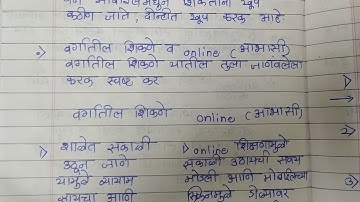 शिकताना खूप
कठीण जाते, दोन्हीत खूप फरक आहे.
वर्गातील शिकणे व online (आभासी)
वर्गातील शिकणे यातील तुला जाणवलेला
फरक स्पष्ट कर
वर्गातील शिकणे online (आभासी)
1) शाळेत सकाळी
उठून जाणे
यामुळे व्यायाम
आणि
1) online शिक्षणामुळे
सकाळी उठायची सवय
मोडली आणि मोबाईलच्या
स्क्रिनमुळे डोळ्यावर
2)
3)